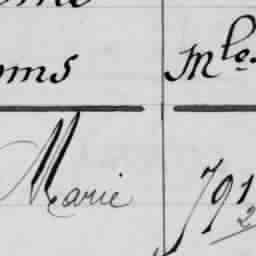 oms Mle.
Marie 791
2